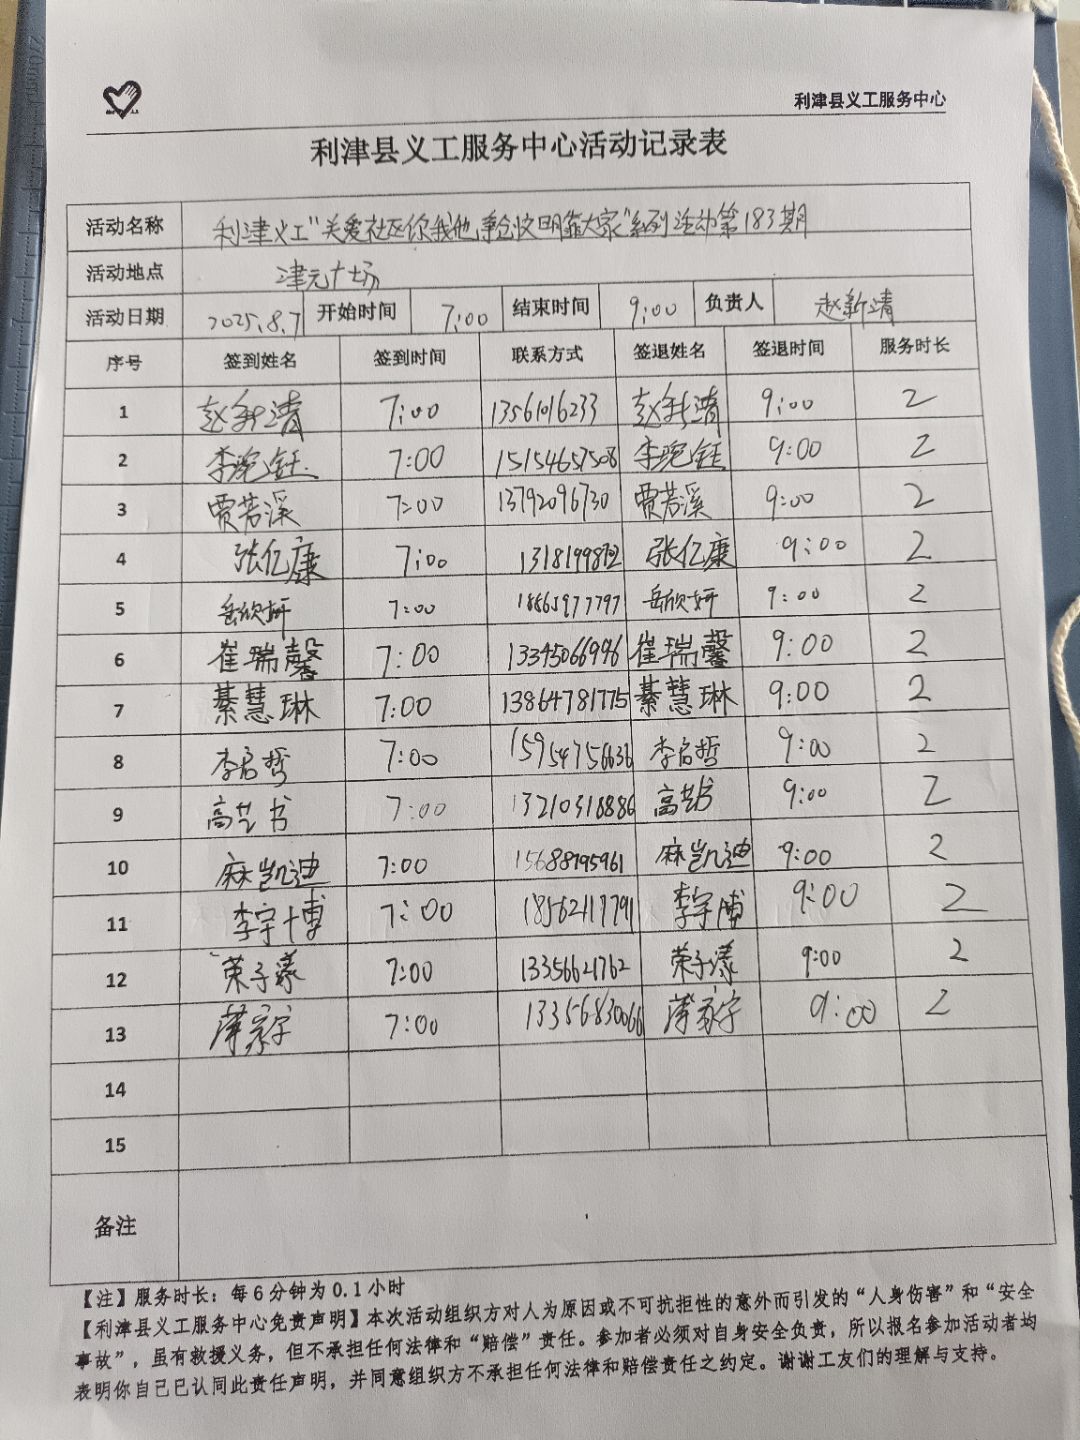 利津县义工服务中心
利津县义工服务中心活动记录表
活动名称 利津义工“关爱社区你我他,争创文明靠大家”系列活动第183期
活动地点 津元广场
活动日期 2025.8.7 开始时间 7:00 结束时间 9:00 负责人 赵新清
序号 签到姓名 签到时间 联系方式 签退姓名 签退时间 服务时长
1 赵新清 7:00 13561016233 赵新清 9:00 2
2 李琬钰 7:00 15154657508 李琬钰 9:00 2
3 贾若溪 7:00 13792096730 贾若溪 9:00 2
4 张亿康 7:00 张亿康 9:00 2
5 岳欣妍 7:00 18865977797 岳欣妍 9:00 2
6 崔瑞馨 7:00 13345066996 崔瑞馨 9:00 2
7 綦慧琳 7:00 13864781775 綦慧琳 9:00 2
8 李启哲 7:00 15954756636 李启哲 9:00 2
9 高艺书 7:00 13210318886 高艺书 9:00 2
10 麻凯迪 7:00 15688795961 麻凯迪 9:00 2
11 李宇博 7:00 18562117791 李宇博 9:00 2
12 荣子漾 7:00 13356621762 荣子漾 9:00 2
13 薄家宇 7:00 13356830066 薄家宇 9:00 2
14
15
备注
【注】服务时长：每6分钟为0.1小时
【利津县义工服务中心免责声明】本次活动组织方对人为原因或不可抗拒性的意外而引发的“人身伤害”和“安全
事故”，虽有救援义务，但不承担任何法律和“赔偿”责任。参加者必须对自身安全负责，所以报名参加活动者均
表明你自己已认同此责任声明，并同意组织方不承担任何法律和赔偿责任之约定。谢谢工友们的理解与支持。